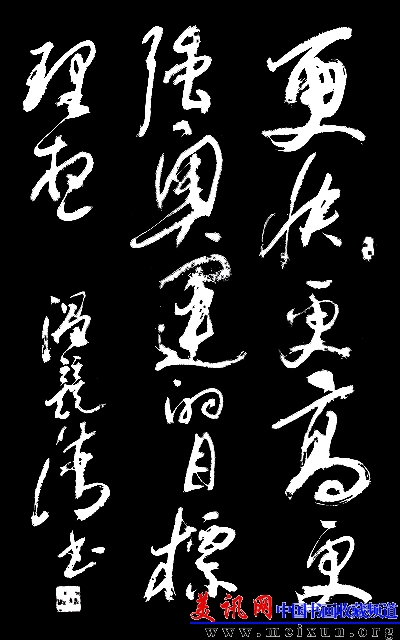 更快更高更
強奧運的目標
理想
书
美讯网 中国书画收藏频道
www.meixun.org